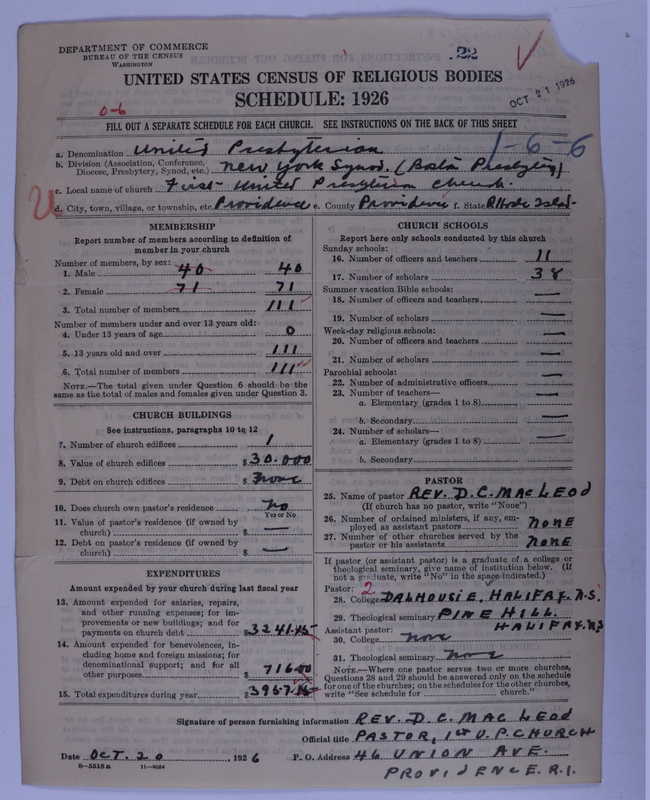 DEPARTMENT OF COMMERCE
BUREAU OF THE CENSUS
WASHINGTON
22
OCT 21 1926
UNITED STATES CENSUS OF RELIGIOUS BODIES
SCHEDULE: 1926
0-6
FILL OUT A SEPARATE SCHEDULE FOR EACH CHURCH. SEE INSTRUCTIONS ON THE BACK OF THIS SHEET
1-6-6
a. Denomination United Presbyterian
b. Division (Association, Conference, Diocese, Presbytery, Synod, etc.) New York Synod. (Boston Presbytery)
c. Local name of church First United Presbyterian Church.
d. City, town, village, or township, etc. Providence e. County Providence f. State Rhode Island
MEMBERSHIP
Report number of members according to definition of
member in your church
Number of members, by sex:
1. Male 40 40
2. Female 71 71
3. Total number of members 111
Number of members under and over 13 years old:
4. Under 13 years of age 0
5. 13 years old and over 111
6. Total number of members 111
NOTE.—The total given under Question 6 should be the
same as the total of males and females given under Question 3.
CHURCH BUILDINGS
See instructions, paragraphs 10 to 12
7. Number of church edifices 1
8. Value of church edifices $30.000
9. Debt on church edifices $none
10. Does church own pastor's residence? no
Yes or No.
11. Value of pastor's residence (if owned by
church) $ —
12. Debt on pastor's residence (if owned by
church) $ —
EXPENDITURES
Amount expended by your church during last fiscal year
13. Amount expended for salaries, repairs,
and other running expenses; for im-
provements or new buildings; and for
payments on church debt $3241.15
14. Amount expended for benevolences, in-
cluding home and foreign missions; for
denominational support; and for all
other purposes $716.00
15. Total expenditures during year $3957.15
CHURCH SCHOOLS
Report here only schools conducted by this church
Sunday schools:
16. Number of officers and teachers 11
17. Number of scholars 38
Summer vacation Bible schools:
18. Number of officers and teachers —
19. Number of scholars —
Week-day religious schools:
20. Number of officers and teachers —
21. Number of scholars —
Parochial schools:
22. Number of administrative officers —
23. Number of teachers—
a. Elementary (grades 1 to 8) —
b. Secondary —
24. Number of scholars—
a. Elementary (grades 1 to 8) —
b. Secondary
PASTOR
25. Name of pastor REV. D. C. MAC LEOD
(If church has no pastor, write "None")
26. Number of ordained ministers, if any, em-
ployed as assistant pastors NONE
27. Number of other churches served by the
pastor or his assistants NONE
If pastor (or assistant pastor) is a graduate of a college or
theological seminary, give name of institution below. (If
not a graduate, write "No" in the space indicated.)
Pastor: 2
28. College DALHOUSIE, HALIFAX. N.S.
29. Theological seminary PINE HILL.
Assistant pastor: HALIFAX. N.S
30. College none
31. Theological seminary none
NOTE.—Where one pastor serves two or more churches,
Questions 28 and 29 should be answered only on the schedule
for one of the churches; on the schedules for the other churches,
write "See schedule for church."
Signature of person furnishing information REV. D. C. MAC LEOD
Official title PASTOR, 1ST U.P. CHURCH
Date OCT. 20, 1926 P. O. Address 46 UNION AVE.
8—5518 a 11—9054 PROVIDENCE. R.I.